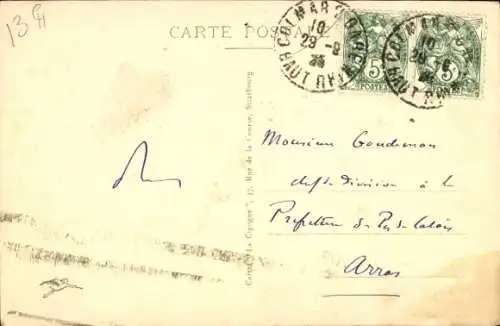 13
CARTE POSTALE
COLMAR GARE
10
29-8
HAUT RHIN
5
POSTES
5
Monsieur Gendremon
chef de Division à la
Préfecture du Pas de Calais
Arras
Cartes "La Cigogne", 17, Rue de la Course, Strasbourg